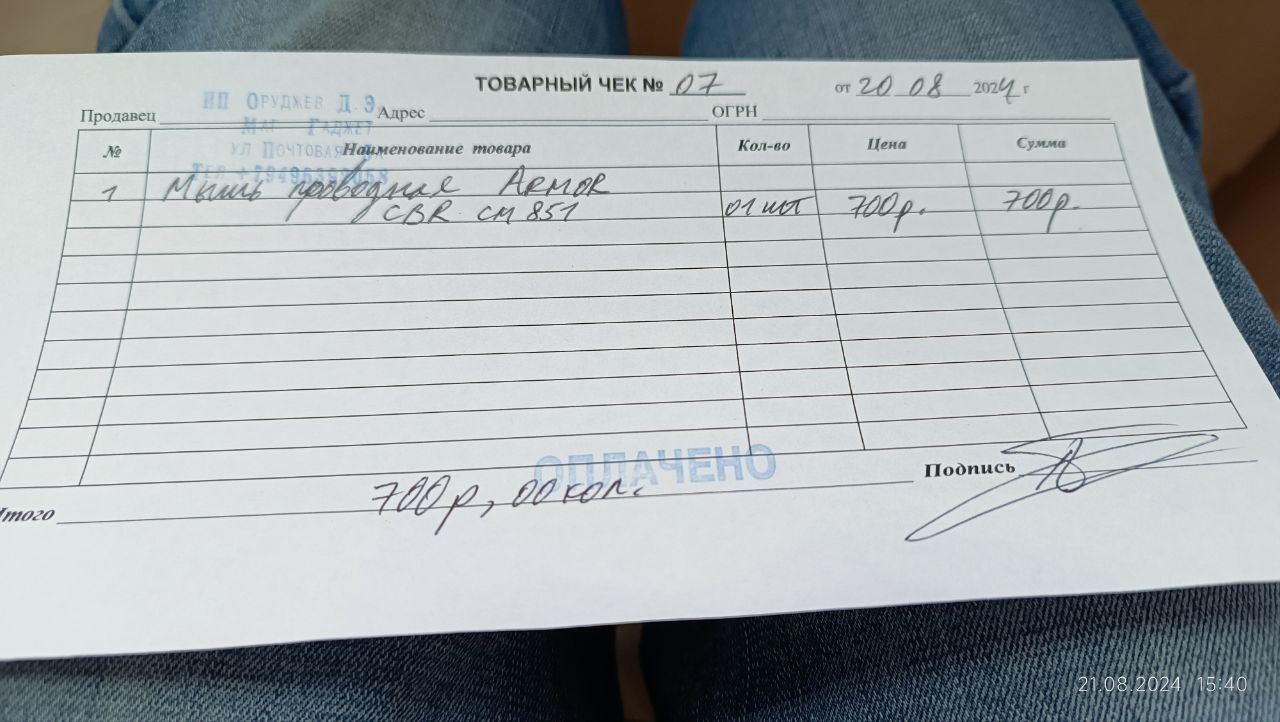 ТОВАРНЫЙ ЧЕК № 07 от 20 08 2024 г
ИП ОРУДЖЕВ Д Э
Продавец Адрес ОГРН
МАГ ГАДЖЕТ
УЛ ПОЧТОВАЯ
№ Наименование товара Кол-во Цена Сумма
1 Мышь проводная ARMOR
CBR CM 851 01 шт 700р. 700р.
ОПЛАЧЕНО
Подпись
Итого 700р, 00коп.
21.08.2024 15:40